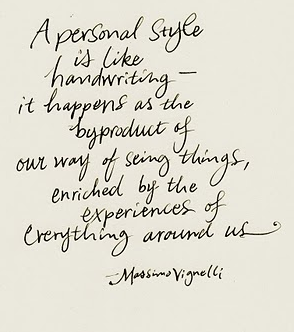 A personal style
is like
handwriting —
it happens as the
byproduct of
our way of seing things,
enriched by the
experiences of
everything around us
—Massimo Vignelli